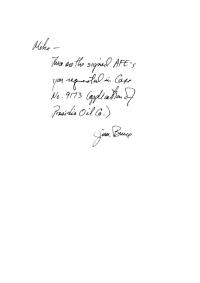 Mike —
These are the signed AFE's
you requested in Case
No. 9173 (application of
Presidio Oil Co.)
Jim Bruce